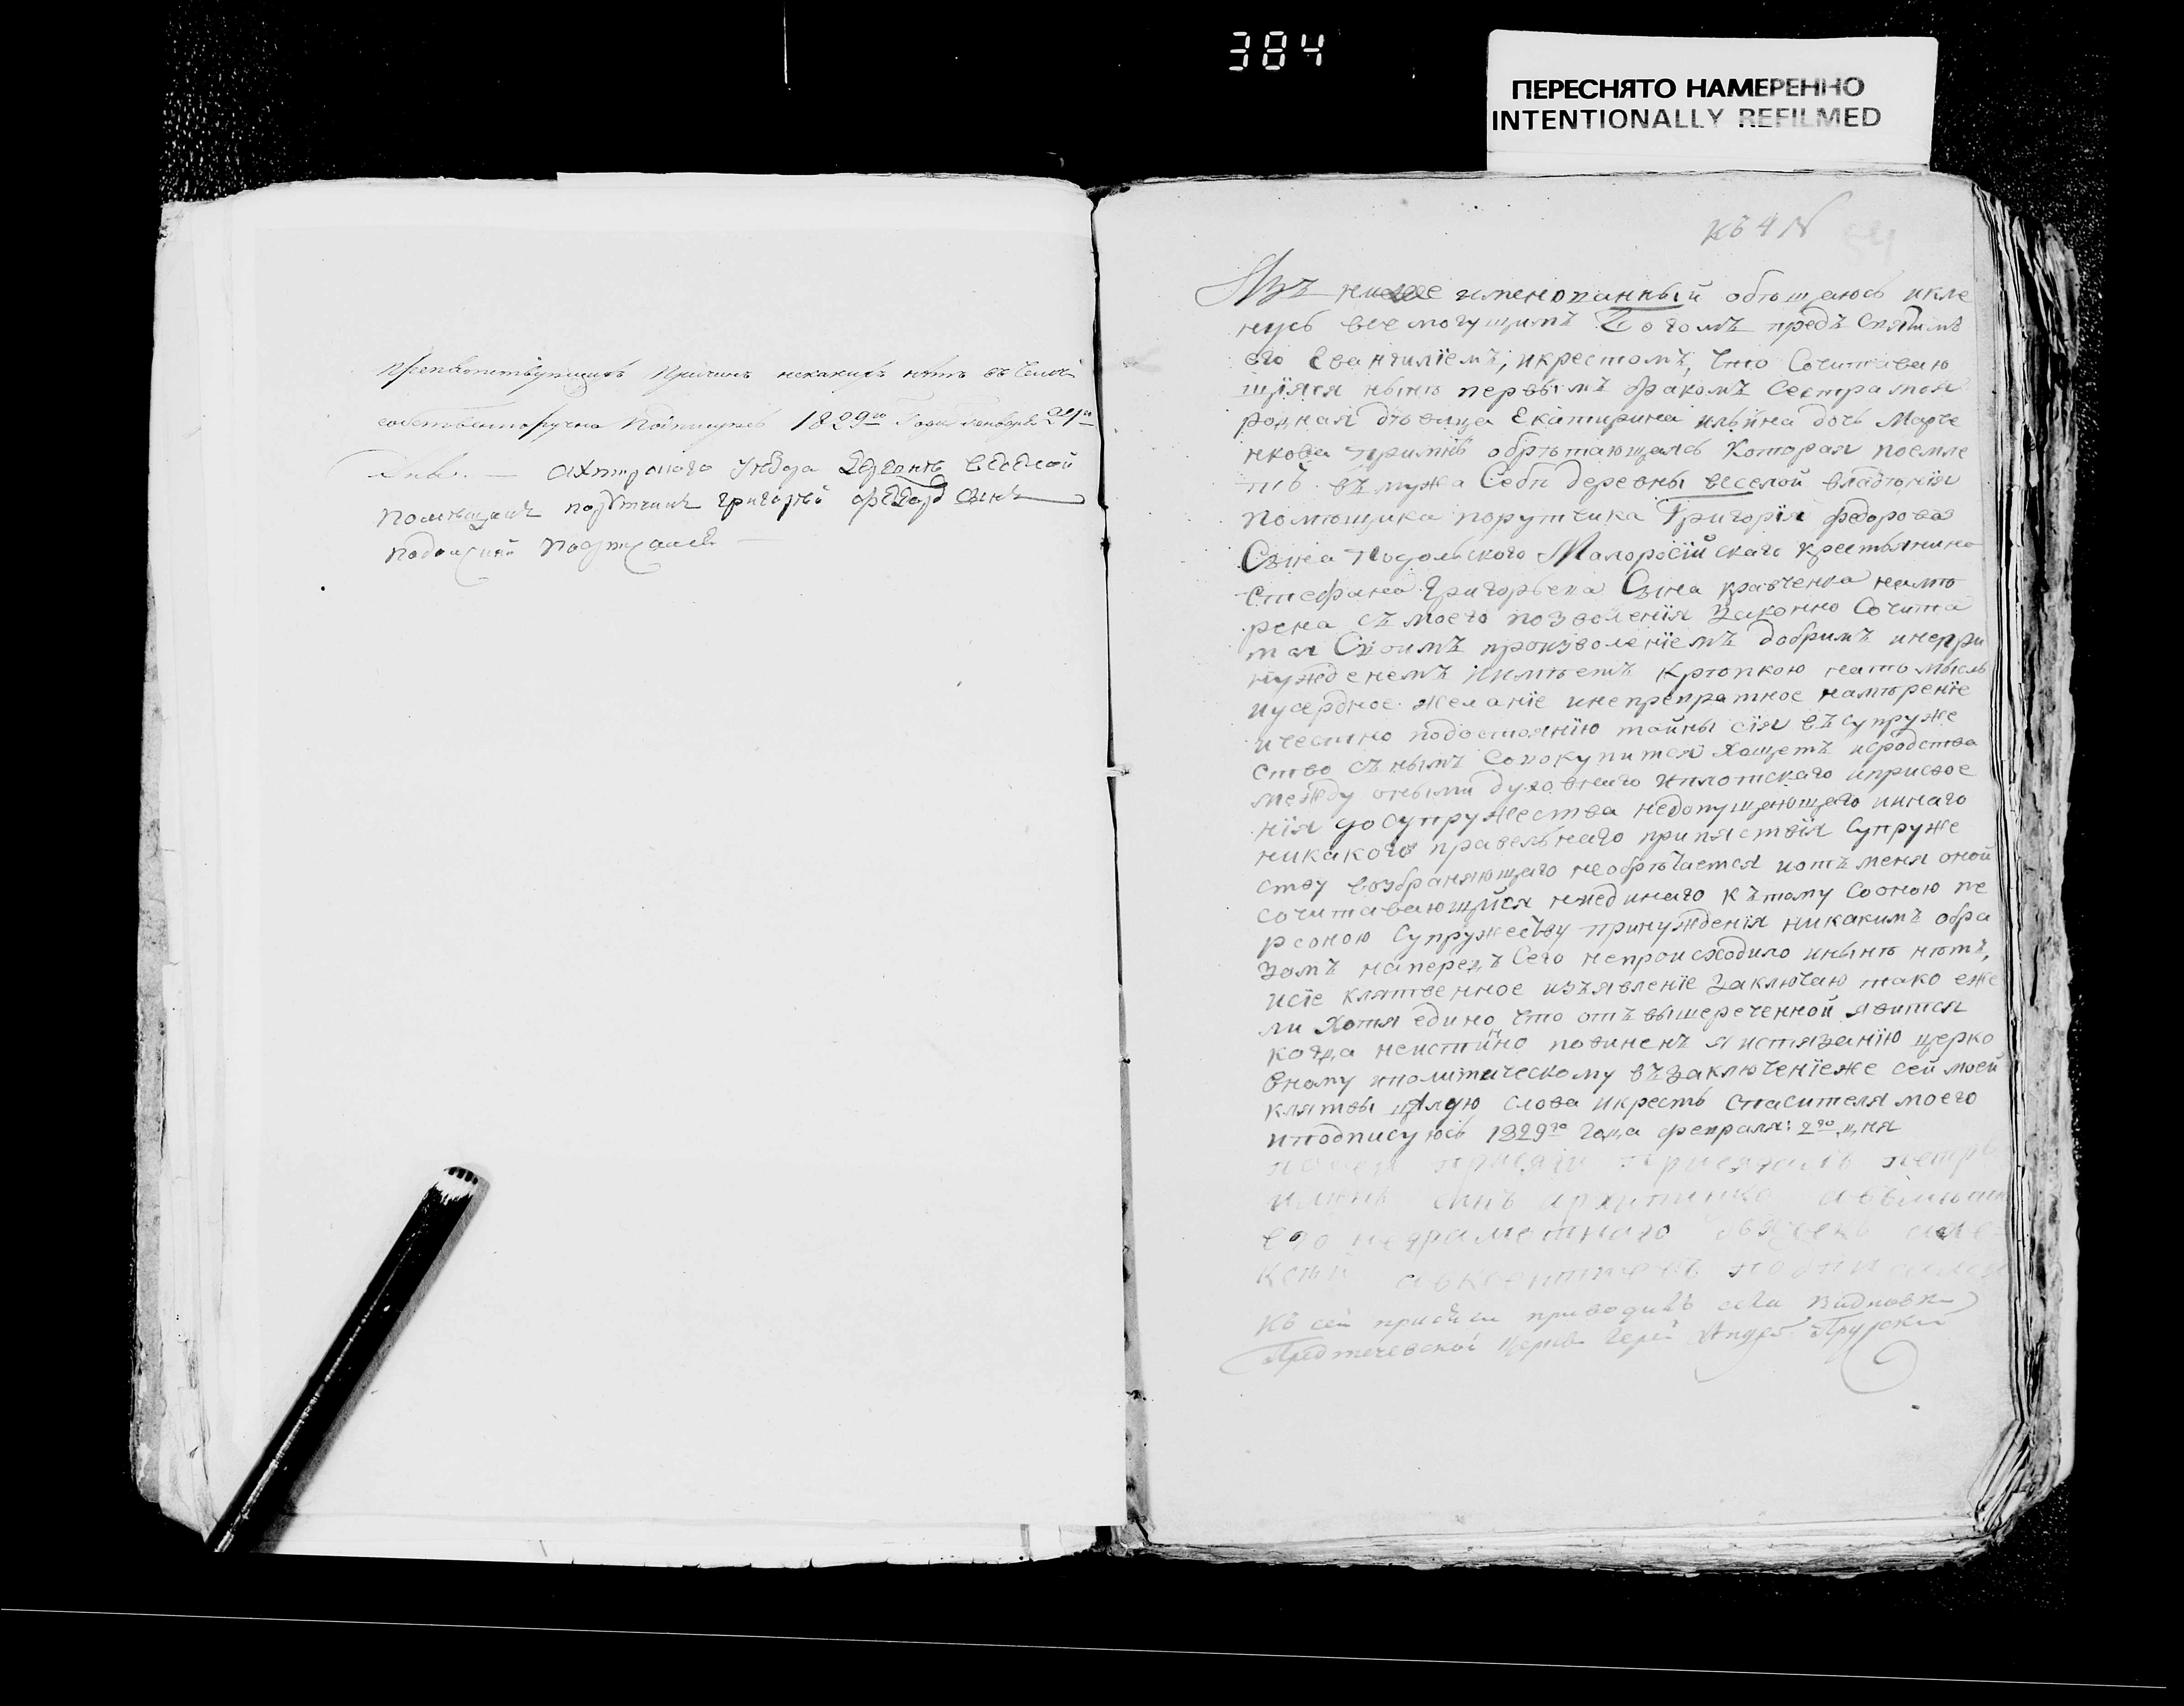 384
ПЕРЕСНЯТО НАМЕРЕННО
INTENTIONALLY REFILMED
препятствующихъ причинъ некакихъ нѣтъ въ чемъ
собственноручно подпишусь 1829го Года генваря 29го
Дня. — уезда веселой
помѣщикъ порутчикъ григорий федор сынъ
подолский
Къ 4 N
Язъ ниже именованный обѣщаюсь икле
нусь всемогущимъ Богомъ предъ Святимъ
его Евангилїемъ, икрестомъ, что Сочитаваю
щїяся нынѣ первымъ бракомъ Сестра моя
родная дѣвица Екатирина ильина дочь Марче
нкова примнѣ обрѣтающаясь Которая поемле
тъ въ мужа Себѣ деревны веселой владѣнїя
помѣщика порутчика Григорїя федорова
Сына Подольского Малоросїйскаго крестьянина
Стефана Григорьева Сына кравченка намѣ
рена съ моего позволенїя Законно Сочита
тся Своимъ произволенїемъ добримъ инепри
нужденемъ иимѣетъ крѣпкою нато мысль
иусердное желанїе инепревратное намѣренїе
ичестно подостоянїю тайны сїя въ супруже
ство съ нымъ Совокупится Хощетъ исродства
между оными духовнаго иплотскаго иприсвое
нїя до супружества недопущающаго иинаго
никакого правельнаго припяствїя Супруже
ству возбраняющаго необрѣтается иотъ меня оной
сочитавающийся ниединаго къ тому Сооною пе
рсоною Супружеству принужденїя никакимъ обра
зомъ напередъ Сего непроисходило инынѣ нѣтъ,
исїе клятвенное изъявленїе Заключаю тако еже
ли Хотя едино, что отъ вышереченной явится
когда неистинно повиненъ я истязанїю церко
вному иполитическому въ заключенїеже сей моей
клятвы цѣлую слова икрестъ спасителя моего
иподписуюсь 1829го года февраля: 2го дня
посей присяги присягалъ петръ
илїинъ синъ
его неграмотнаго
подписался
Къ сей присяги приводилъ села
Предтечевской Церкви Іерей Андрей